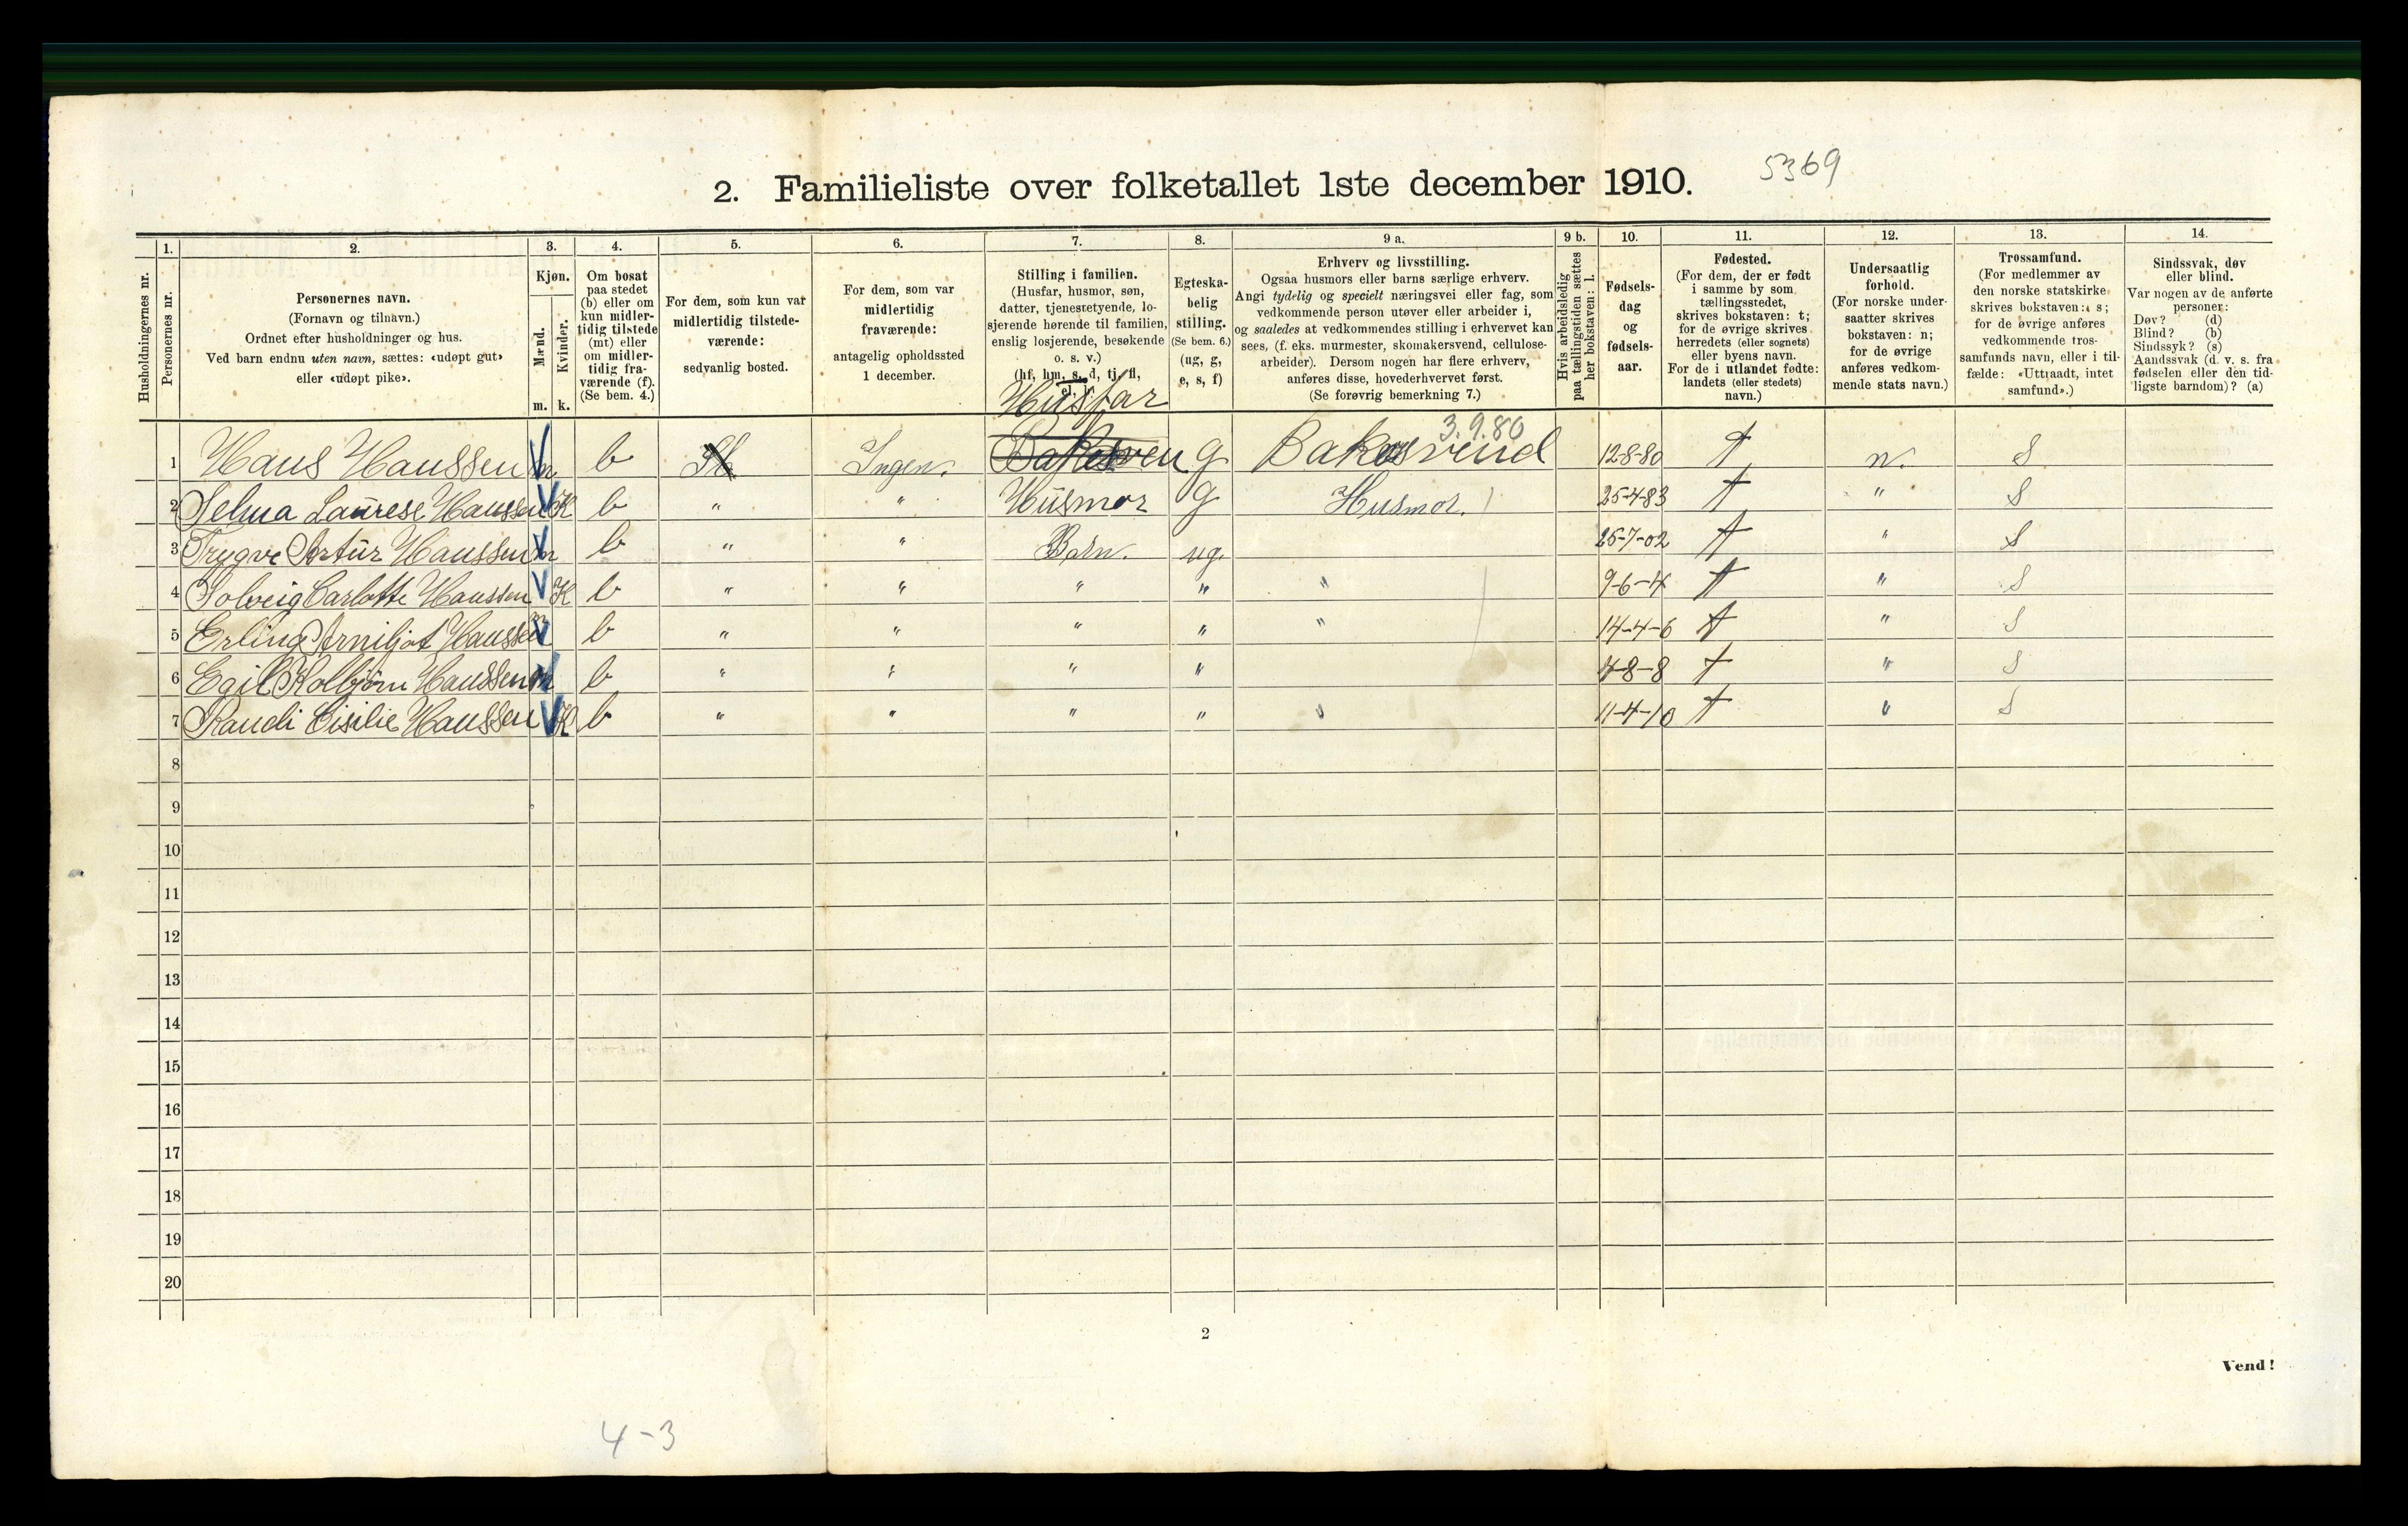 5369
2. Familieliste over folketallet 1ste december 1910.
Husholdningernes nr.
1.
Personernes nr.
2.
Personernes navn.
(Fornavn og tilnavn.)
Ordnet efter husholdninger og hus.
Ved barn endnu uten navn, sættes: «udøpt gut»
eller «udøpt pike».
3.
Kjøn.
Mænd.
Kvinder.
m. k.
4.
Om bosat
paa stedet
(b) eller om
kun midler-
tidig tilstede
(mt) eller
om midler-
tidig fra-
værende (f).
(Se bem. 4.)
5.
For dem, som kun var
midlertidig tilstede-
værende:
sedvanlig bosted.
6.
For dem, som var
midlertidig
fraværende:
antagelig opholdssted
1 december.
7.
Stilling i familien.
(Husfar, husmor, søn,
datter, tjenestetyende, lo-
sjerende hørende til familien,
enslig losjerende, besøkende
o. s. v.)
(hf, hm, s, d, tj, fl,
el, b)
8.
Egteska-
belig
stilling.
(Se bem. 6.)
(ug, g,
e, s, f)
9 a.
Erhverv og livsstilling.
Ogsaa husmors eller barns særlige erhverv.
Angi tydelig og specielt næringsvei eller fag, som
vedkommende person utøver eller arbeider i,
og saaledes at vedkommendes stilling i erhvervet kan
sees, (f. eks. murmester, skomakersvend, cellulose-
arbeider). Dersom nogen har flere erhverv,
anføres disse, hovederhvervet først.
(Se forøvrig bemerkning 7.)
9 b.
Hvis arbeidsledig
paa tællingstiden sættes
her bokstaven: l.
10.
Fødsels-
dag
og
fødsels-
aar.
11.
Fødested.
(For dem, der er født
i samme by som
tællingsstedet,
skrives bokstaven: t;
for de øvrige skrives
herredets (eller sognets)
eller byens navn.
For de i utlandet fødte:
landets (eller stedets)
navn.)
12.
Undersaatlig
forhold.
(For norske under-
saatter skrives
bokstaven: n;
for de øvrige
anføres vedkom-
mende stats navn.)
13.
Trossamfund.
(For medlemmer av
den norske statskirke
skrives bokstaven: s;
for de øvrige anføres
vedkommende tros-
samfunds navn, eller i til-
fælde: «Uttraadt, intet
samfund».)
14.
Sindssvak, døv
eller blind.
Var nogen av de anførte
personer:
Døv? (d)
Blind? (b)
Sindssyk? (s)
Aandssvak (d. v. s. fra
fødselen eller den tid-
ligste barndom)? (a)
Husfar
3.9.80
1 Hans Hanssen m b Ingen. Bakersven g Bakersvend 12-8-80 t n. S
2 Selma Laurese Hanssen K b " " Husmor g Husmor. 25-4-83 t " S
3 Trygve Artur Hanssen m b " " Barn. ug. 25-7-02 t " S
4 Solveig Carlotte Hanssen K b " " " " " 9-6-4 t " S
5 Erling Arniljot Hanssen m b " " " " " 14-4-6 t " S
6 Egil Kolbjörn Hanssen m b " " " " 4-8-8 t " S
7 Randi Cisilie Hanssen K b " " " " " 11-4-10 t " S
8
9
10
11
12
13
14
15
16
17
18
19
20
2
Vend!
4-3